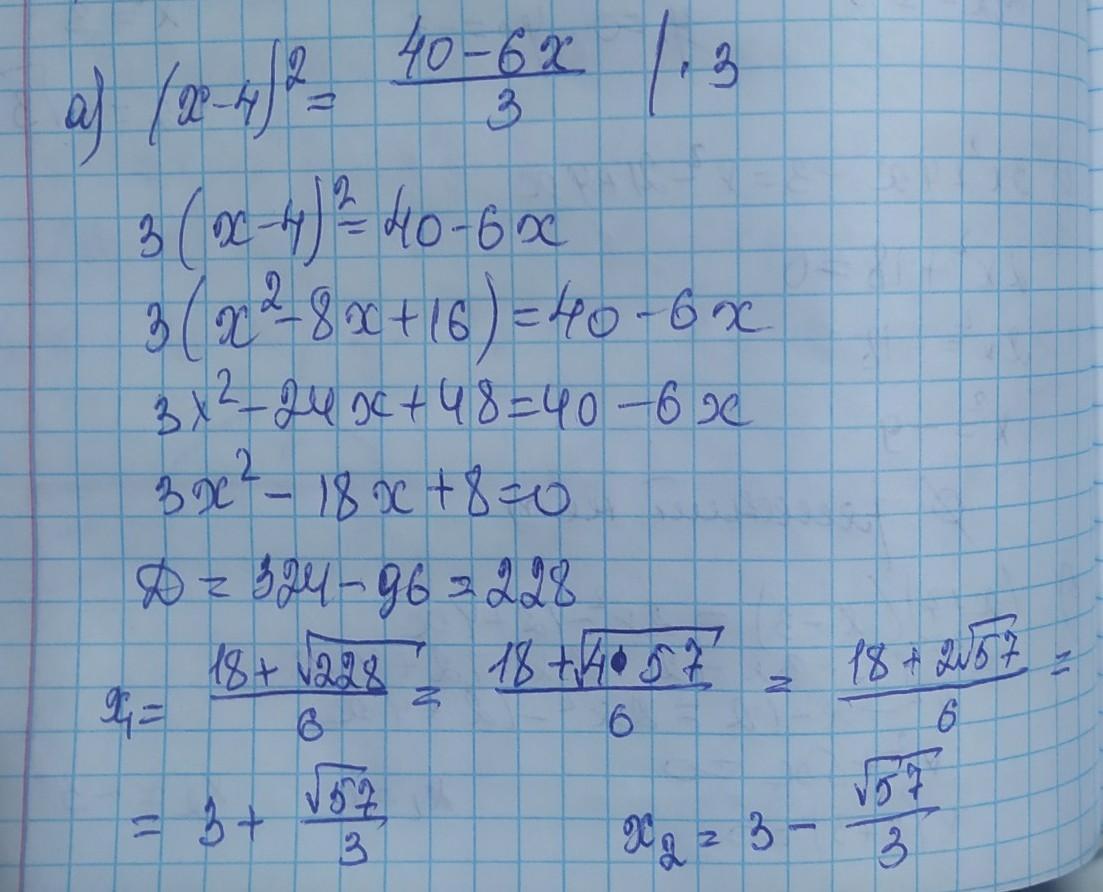 а) (x-4)² = (40-6x)/3 | · 3
3(x-4)² = 40-6x
3(x²-8x+16) = 40-6x
3x²-24x+48 = 40-6x
3x²-18x+8=0
D = 324-96 = 228
x₁ = (18+√228)/6 = (18+√(4·57))/6 = (18+2√57)/6 =
= 3 + √57/3 x₂ = 3 - √57/3